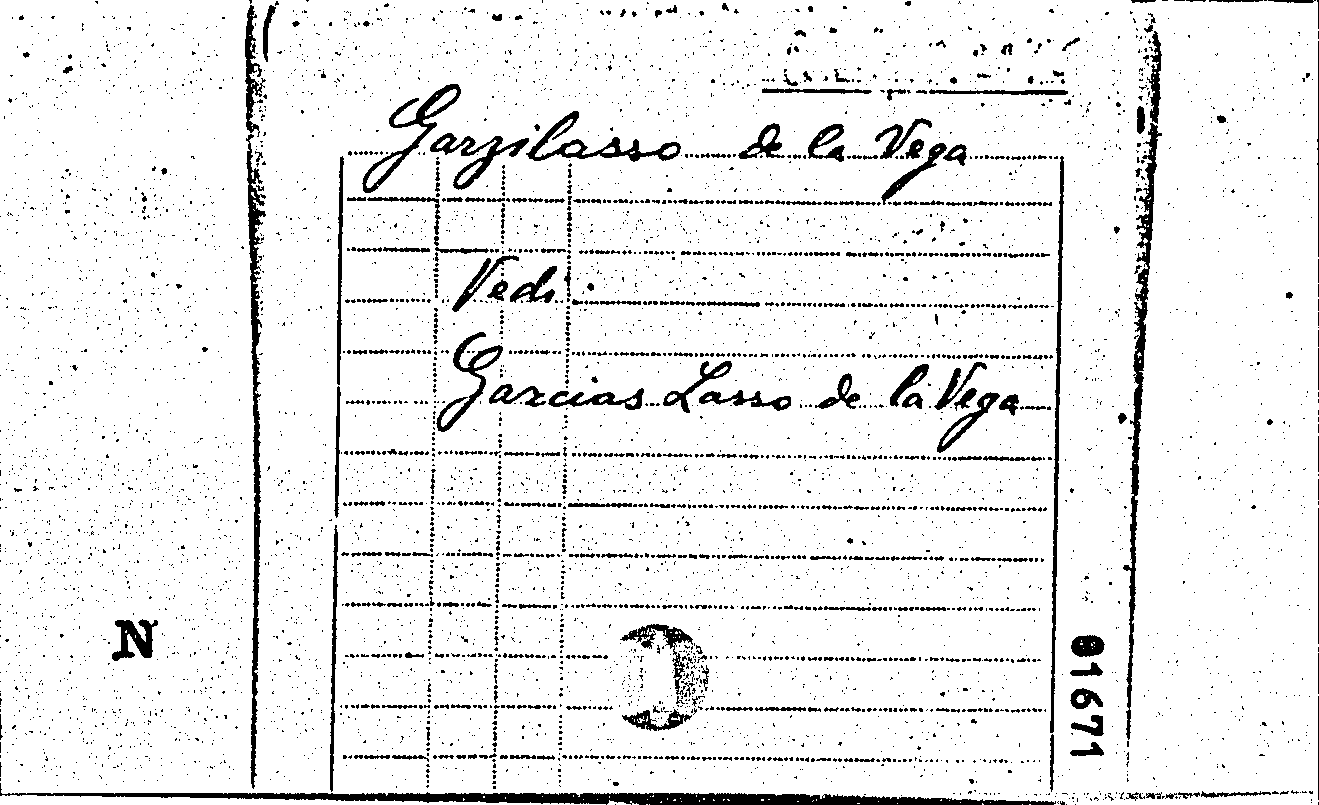 Garzilasso de la Vega
Vedi:
Garcias Lasso de la Vega
N